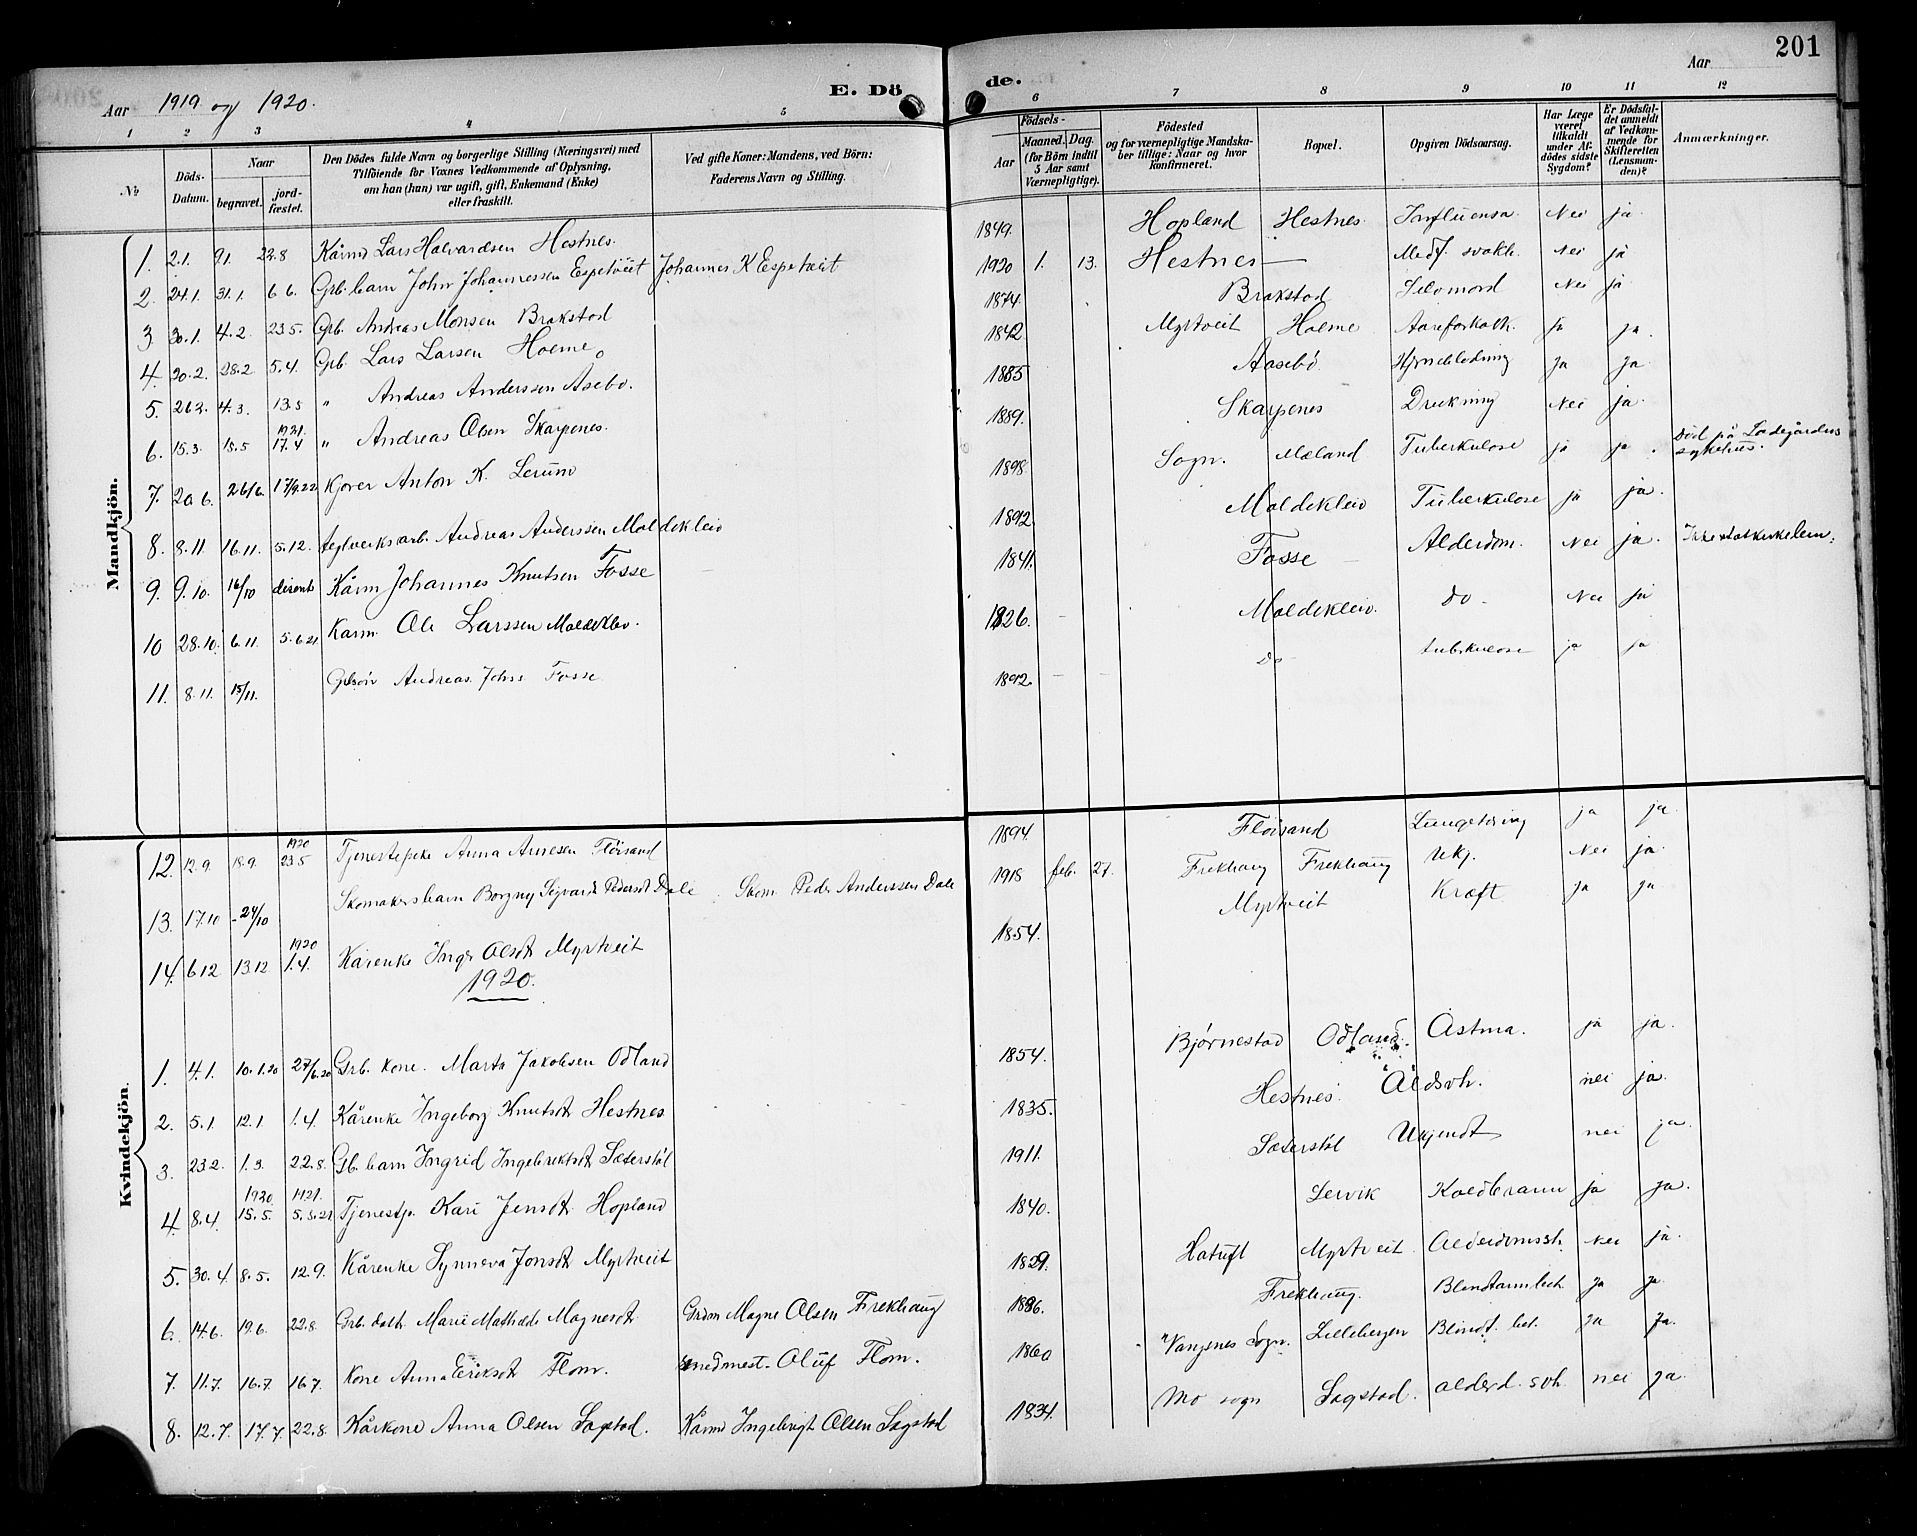 201
Aar 1919 og 1920.
E. Dö de.
Aar
1 2 3 4 5 6 7 8 9 10 11 12
No
Döds-Datum.
Naar begravet. jordfæstet.
Den Dödes fulde Navn og borgerlige Stilling (Næringsvei) med Tilföiende for Voxnes Vedkommende af Oplysning, om han (hun) var ugift, gift, Enkemand (Enke) eller fraskilt.
Ved gifte Koner: Mandens, ved Börn: Faderens Navn og Stilling.
Födsels-
Aar
Maaned. Dag. (for Börn indtil 5 Aar samt Værnepligtige).
Födested og for værnepligtige Mandskaber tillige: Naar og hvor konfirmeret.
Bopæl.
Opgiven Dödsaarsag.
Har Læge været tilkaldt under Afdödes sidste Sygdom?
Er Dödsfaldet anmeldt af Vedkommende for Skifteretten (Lensmanden)?
Anmærkninger.
Mandkjön.
1. 2.1. 9.1. 22.8 Kårm Lars Halvardsen Hestnes. 1849. Hopland Hestnes Influensa. Nei ja
2. 24.1. 31.1. 6.6. Grb. barn John Johannessen Espetveit Johannes K Espetveit 1920 1. 13. Hestnes — Medf. svakh. Nei ja
3 30.1. 4.2. 23.5. Grb. Andreas Monsen Brakstad 1874. Brakstad Selvmord Nei ja
4. 20.2. 28.2 5.4. Grb. Lars Larsen Holme 1842. Myrtveit Holme Aareforkalk. ja ja.
5. 26.2. 4.3. 13.5 " Andreas Anderssen Åsebø. 1885 Aasebø Hjerneblødning ja ja.
6. 15.3. 15.5 1921. 17.4 " Andreas Olsen Skarpenes. 1889. Skarpenes Drukning Nei ja.
7. 20.6. 26/6. 17/9.22 Gjører Anton K. Lerum 1898 Sogn. Mæland Tuberkulose ja ja. Død på Lodegårdens sykehus.
8. 8.11. 16.11. 5.12. teglverksarb. Andreas Anderssen Moldekleiv 1892 Moldekleiv Tuberkulose ja ja.
9. 9.10. 16/10 Kårm Johannes Knutsen Fosse 1841. Fosse — Alderdom. Nei ja. Ikke statskirkelem.
10 28.10. 6.11. 5.6.21 Kårm. Ole Larssen Moldeklev. 1826. – Moldekleiv. do - Nei ja
11. 8.11. 15/11. Gbsøn Andreas Johs Fosse 1892. – – do tuberkulose ja ja
Kvindekjön.
12. 12.9. 18.9. 1920 23.5 Tjenestepike Anna Annesen Fløisand 1894. Fløisand ja ja.
13. 17.10 -24/10 Skomakersbarn Borgny Sigvarda Pedersdt Dale Skom. Peder Anderssen Dale 1918 feb. 27. Frekhaug Frekhaug Ukj. Nei ja.
14. 6.12 13.12 1920 1.4. Kårenke Inga Olsdt Myrtveit 1854. Myrtveit Kræft ja ja
1920.
1. 4.1. 10.1.20 27/6.20 Grb. kone. Marta Jakobsen Odland 1854. Bjørnestad Odland. Astma. ja ja.
2. 5.1 12.1. 1.4. Kårenke Ingeborg Knutsdt Hestnes 1835. Hestnes. Aldsvh. nei ja.
3. 23.2. 1.3. 22.8. Gb. barn Ingrid Ingebriktsdt Sæterstøl 1911. Sæterstøl Ukjendt nei ja.
4. 8.4. 1920 15.5. 1921. 5.3.21 Tjenestp. Kari Jensdt Hopland 1840. Lervik Koldbrann ja ja.
5. 30.4. 8.5. 12.9. Kårenke Synneva Jonsdt Myrtveit 1829. Hatuft Myrtveit Alderdomssv. nei ja.
6. 14.6. 19.6. 22.8. Grb. datt. Marie Mathilde Magnesdt Grdm Magne Olsen Frekhaug 1886. Frekhaug. Blindtarmbet. ja ja.
7. 11.7. 16.7. 16.7. Kone Anna Eriksdt Flom. smedmest. Oluf Flom. 1860 "Vangsnes Sogn. Lillebergen Blindt. bet. ja ja.
8. 12.7. 17.7 22.8. Kårkone Anna Olsen Sagstad. Kårm Ingebrigt Olsen Sagstad 1834. Mo sogn Sagstad. alderd. svh. nei ja.